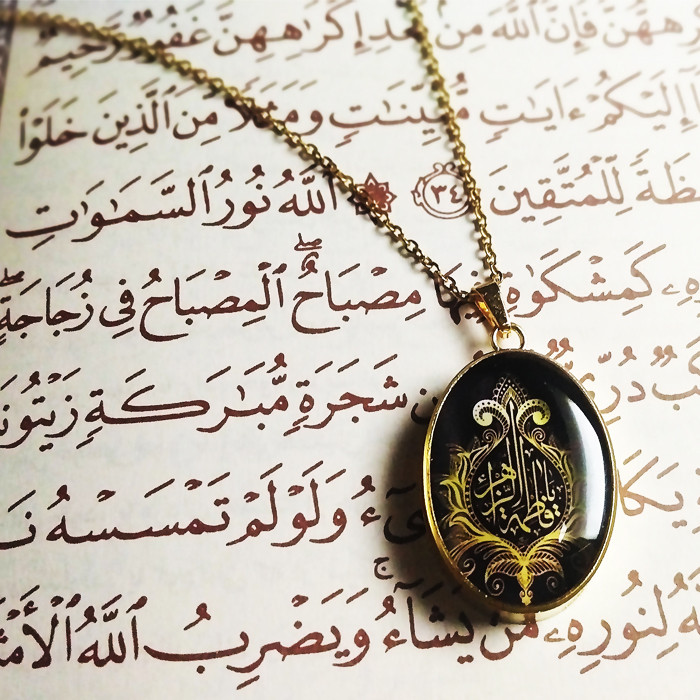 رَٰهِهِنَّ فَإِنَّ ٱللَّهَ مِنۢ بَعْدِ إِكْرَٰهِهِنَّ غَفُورٌ رَّحِيمٌ
إِلَيْكُمْ ءَايَٰتٍ مُّبَيِّنَٰتٍ وَمَثَلًا مِّنَ ٱلَّذِينَ خَلَوْا۟
ظَةً لِّلْمُتَّقِينَ ٣٤ ٱللَّهُ نُورُ ٱلسَّمَٰوَٰتِ
كَمِشْكَوٰةٍ فِيهَا مِصْبَاحٌ ۖ ٱلْمِصْبَاحُ فِى زُجَاجَةٍ ۖ
كَبٌ دُرِّىٌّ شَجَرَةٍ مُّبَٰرَكَةٍ زَيْتُونَ
يَكَا ىٓءُ وَلَوْ لَمْ تَمْسَسْهُ نَ
لِنُورِهِۦ مَن يَشَآءُ ۚ وَيَضْرِبُ ٱللَّهُ ٱلْأَمْثَ
يا فاطمة الزهراء